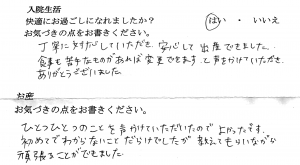 入院生活
快適にお過ごしになれましたか？ はい ・ いいえ
お気づきの点をお書きください。
丁寧に対応していただき、安心して出産できました。
食事も苦手なものがあれば変更できます、と声をかけていただき
ありがとうございました。
お産
お気づきの点をお書きください。
ひとつひとつのことを声かけていただいたので よかったです。
初めてでわからないことだらけでしたが 教えてもらいながら
頑張ることができました。